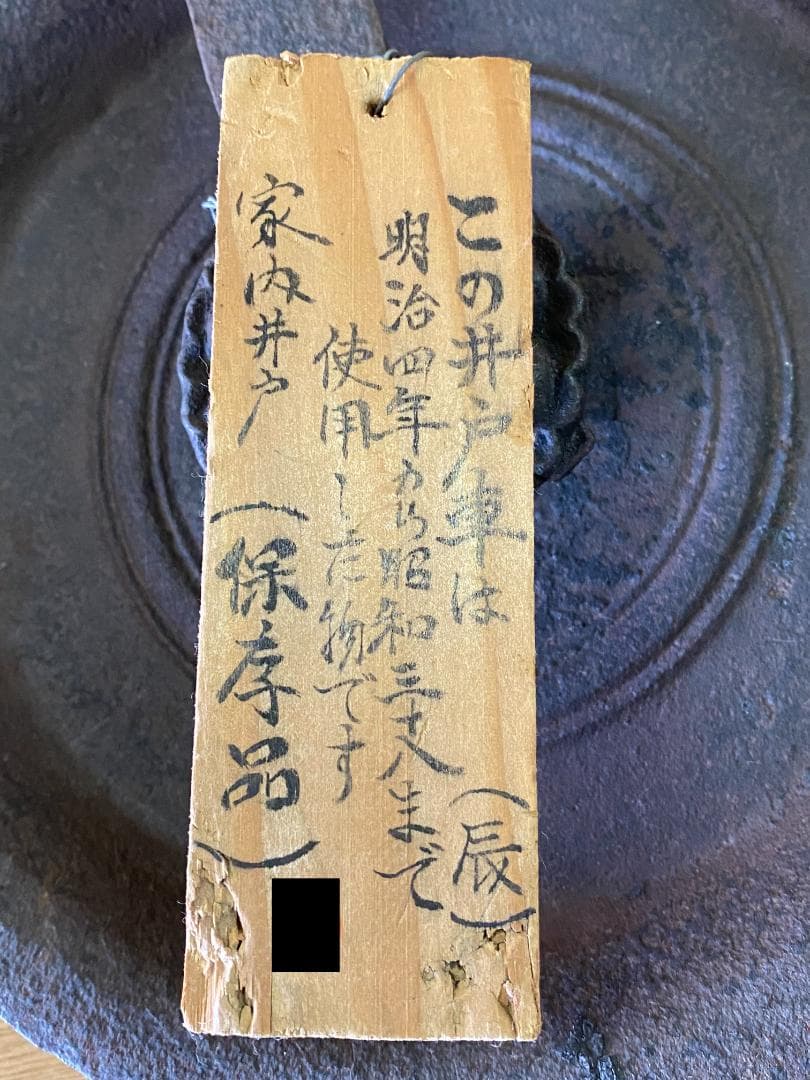 この井戸車は(辰)
明治四年から昭和三十八年まで
使用した物です
家内井戸(保存品)